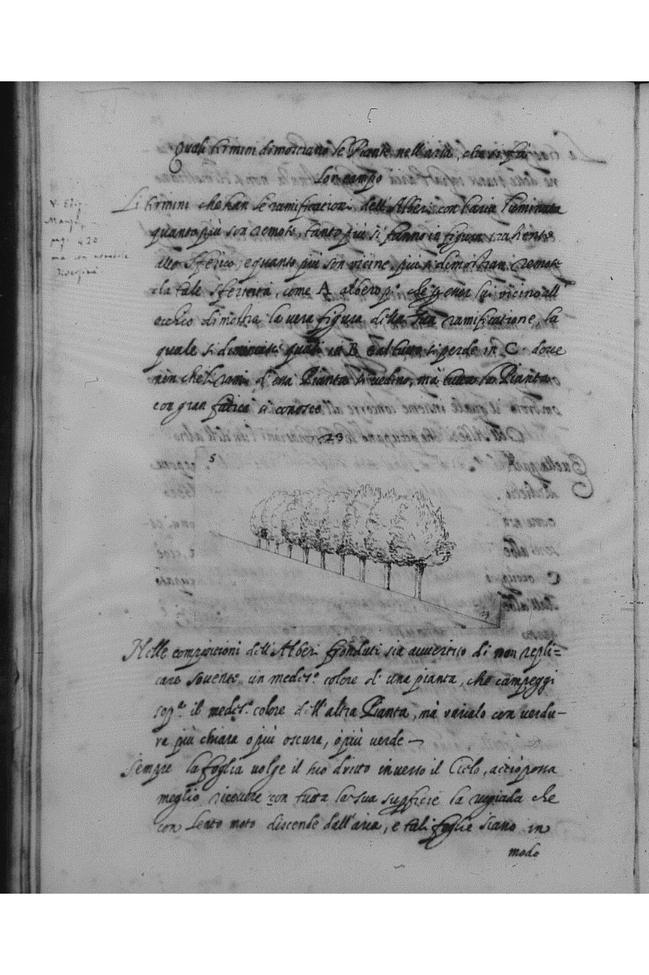 Quali termini dimostrano le Piante nell'aria, che si fà
lor campo
Li termini che han le ramificationi dell'Alberi con l'aria luminata
quanto più son remoti, tanto più si fanno in figura trahente
allo sferico; e quanto più son vicine, più si dimostran remote
da tale sfericità, come A albero p.º che p essere lui vicino all'
occhio dimostra la vera figura della sua ramificatione, la
quale si diminuisce quasi in B e al tutto si perde in C dove
non che li rami d'essa Pianta si vedino, mà tutta la Pianta
con gran fatica si conosce
23
5
Nelle compositioni dell'Alberi fronduti sia avvertito di non repli=
care sovente un medes.º colore d'una pianta, che campeggi
sop.ª il medes.º colore dell'altra Pianta, mà varialo con verdu-
ra più chiara o più oscura, ò più verde
Sempre la foglia volge il suo dritto inverso il Cielo, acciò possa
meglio ricevere con tutta la sua superficie la rugiada che
con lento moto discende dall'aria, e tali foglie siano in
modo
V.
Manz.
pag. 420